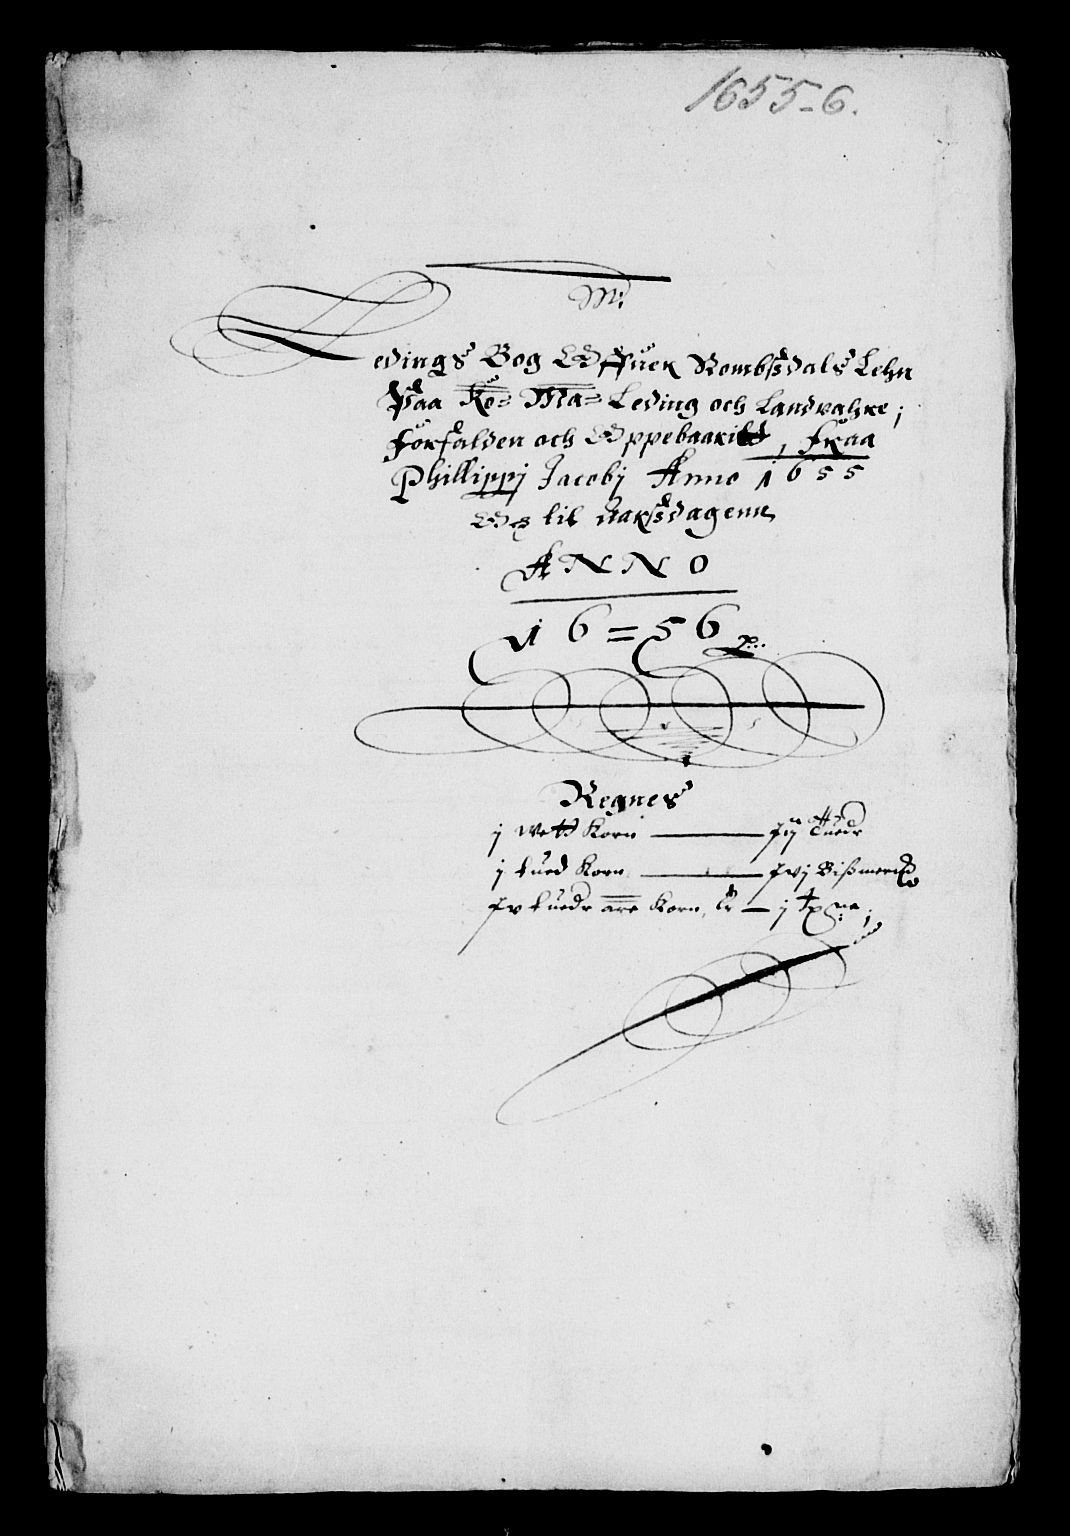 1655-6.
M:
Ledings Bog Offuer Rombsdals Lehn
Paa Ko= Ma= Leding och Landvahre;
forfalden och Oppebaaritt, fraa
Phillippj Jacobj Anno 1655
Och til Aarsdagenn
ANNO
16=56
Regnes
j Wett Korn — iij Tuedr
j tued Korn — xvj Bißmer
are Korn, Er — j